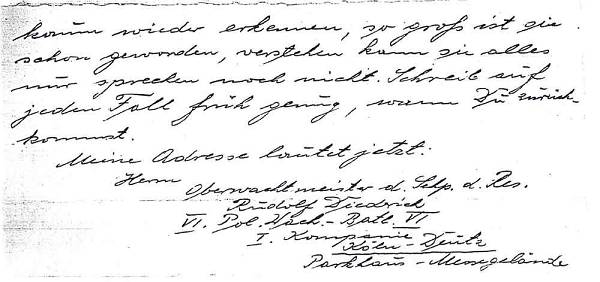 kaum wieder erkennen, so groß ist sie
schon geworden, verstehen kann sie alles
nur sprechen noch nicht. Schreib auf
jeden Fall früh genug, wann Du zurück-
kommst.
Meine Adresse lautet jetzt:
Herrn
Oberwachtmeister d. Schp. d. Res.
Rudolf Diedrich
VI. Pol. Wach.-Batl. VI
I. Kompanie
Köln-Deutz
Parkhaus-Messegelände